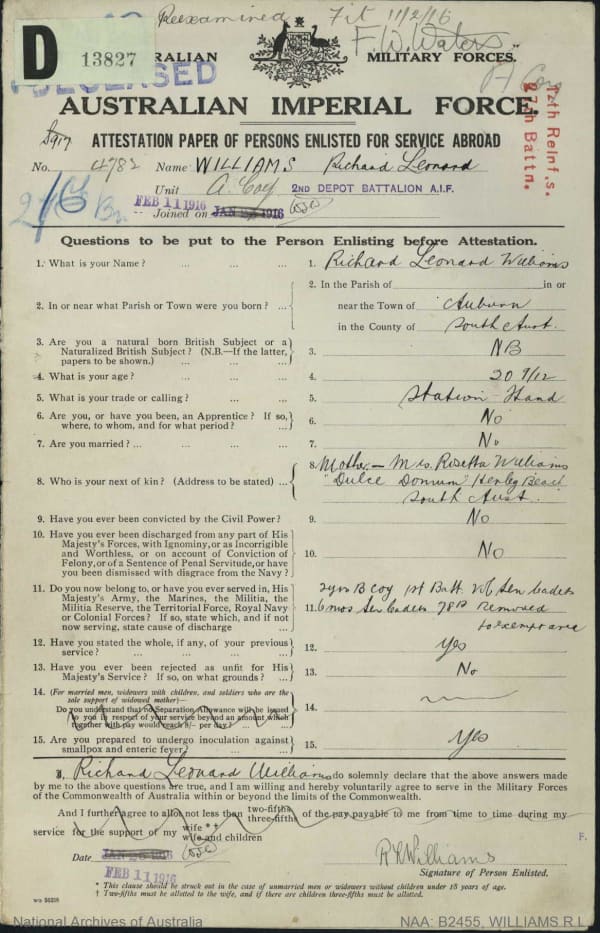 Reexamined Fit 11/2/16
F. W. Waters
D 13827
DECEASED
AUSTRALIAN MILITARY FORCES.
A Coy
AUSTRALIAN IMPERIAL FORCE.
12th Reinf,s.
27th Battn.
ATTESTATION PAPER OF PERSONS ENLISTED FOR SERVICE ABROAD
No. 4782 Name WILLIAMS Richard Leonard
Unit A. Coy 2ND DEPOT BATTALION A.I.F.
FEB 11 1916
Joined on JAN 1916
27/ Bn
Questions to be put to the Person Enlisting before Attestation.
1. What is your Name? ... ... ... 1. Richard Leonard Williams
2. In or near what Parish or Town were you born? ... 2. In the Parish of in or
near the Town of Auburn
in the County of South Aust.
3. Are you a natural born British Subject or a
Naturalized British Subject? (N.B.—If the latter,
papers to be shown.) ... ... 3. NB
4. What is your age? ... ... ... 4. 20 9/12
5. What is your trade or calling? ... ... 5. Station Hand
6. Are you, or have you been, an Apprentice? If so,
where, to whom, and for what period? ... 6. No
7. Are you married? ... ... ... ... 7. No
8. Who is your next of kin? (Address to be stated) ... 8. Mother — Mrs. Rosetta Williams
"Dulce Domum" Henley Beach
South Aust.
9. Have you ever been convicted by the Civil Power? 9. No
10. Have you ever been discharged from any part of His
Majesty's Forces, with Ignominy, or as Incorrigible
and Worthless, or on account of Conviction of
Felony, or of a Sentence of Penal Servitude, or have
you been dismissed with disgrace from the Navy? 10. No
11. Do you now belong to, or have you ever served in, His
Majesty's Army, the Marines, the Militia, the
Militia Reserve, the Territorial Force, Royal Navy
or Colonial Forces? If so, state which, and if not
now serving, state cause of discharge ... 11. 2yrs B Coy 1st Batt. Sen Cadets
6 mos Sen Cadets 78B Removed
to exempt area
12. Have you stated the whole, if any, of your previous
service? ... ... ... ... 12. Yes
13. Have you ever been rejected as unfit for His
Majesty's Service? If so, on what grounds? ... 13. No
14. (For married men, widowers with children, and soldiers who are the
sole support of widowed mother)—
Do you understand that no Separation Allowance will be issued
to you in respect of your service beyond an amount which
together with pay would reach 8/- per day? ... 14.
15. Are you prepared to undergo inoculation against
smallpox and enteric fever? ... ... 15. Yes
I, Richard Leonard Williams do solemnly declare that the above answers made
by me to the above questions are true, and I am willing and hereby voluntarily agree to serve in the Military Forces
of the Commonwealth of Australia within or beyond the limits of the Commonwealth.
And I further agree to allot not less than two-fifths three-fifths of the pay payable to me from time to time during my
service for the support of my wife* † wife and children
F.
Date JAN 1916
FEB 11 1916
R L Williams
Signature of Person Enlisted.
* This clause should be struck out in the case of unmarried men or widowers without children under 18 years of age.
† Two-fifths must be allotted to the wife, and if there are children three-fifths must be allotted.
National Archives of Australia
NAA: B2455, WILLIAMS R L